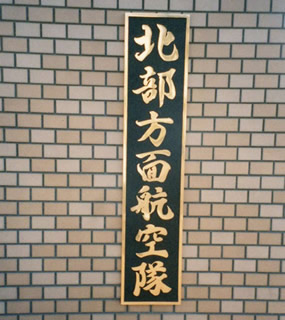 北部方面航空隊